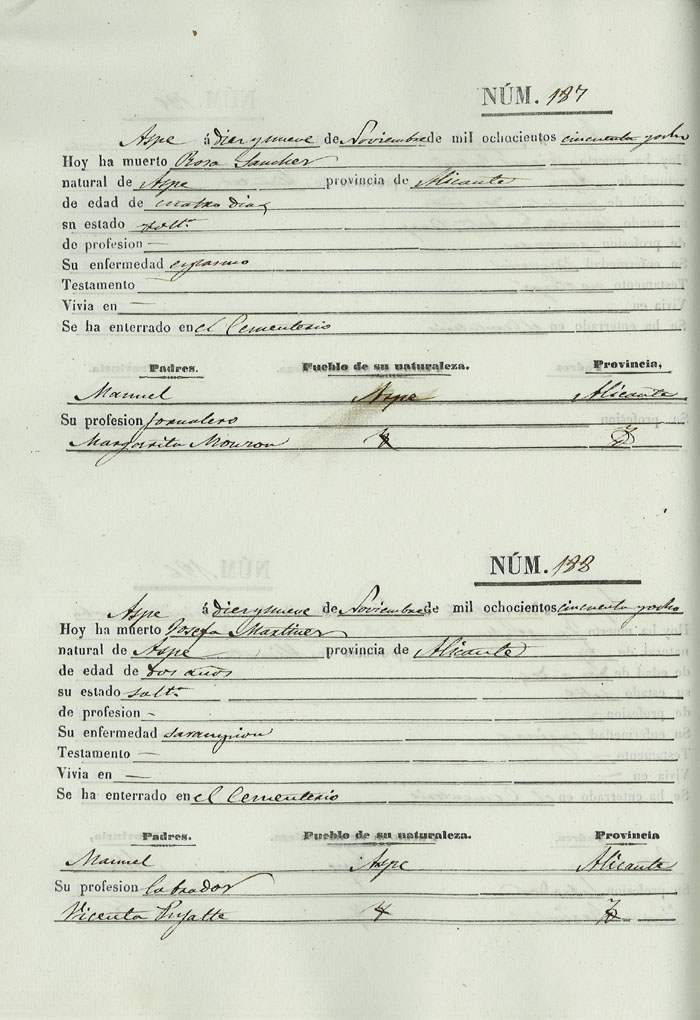 NÚM. 187
Aspe á diez y nueve de Noviembre de mil ochocientos cincuenta y ocho
Hoy ha muerto Rosa Sanchez
natural de Aspe provincia de Alicante
de edad de cuatro dias
su estado solt.ª
de profesion —
Su enfermedad espasmo
Testamento —
Vivia en —
Se ha enterrado en el Cementerio
Padres. Pueblo de su naturaleza. Provincia,
Manuel Aspe Alicante
Su profesion Jornalero
Margarita Monzon
NÚM. 188
Aspe á diez y nueve de Noviembre de mil ochocientos cincuenta y ocho
Hoy ha muerto Josefa Martinez
natural de Aspe provincia de Alicante
de edad de dos años
su estado solt.ª
de profesion -
Su enfermedad sarampion
Testamento —
Vivia en —
Se ha enterrado en el Cementerio
Padres. Pueblo de su naturaleza. Provincia
Manuel Aspe Alicante
Su profesion labrador
Vicenta Pujalte